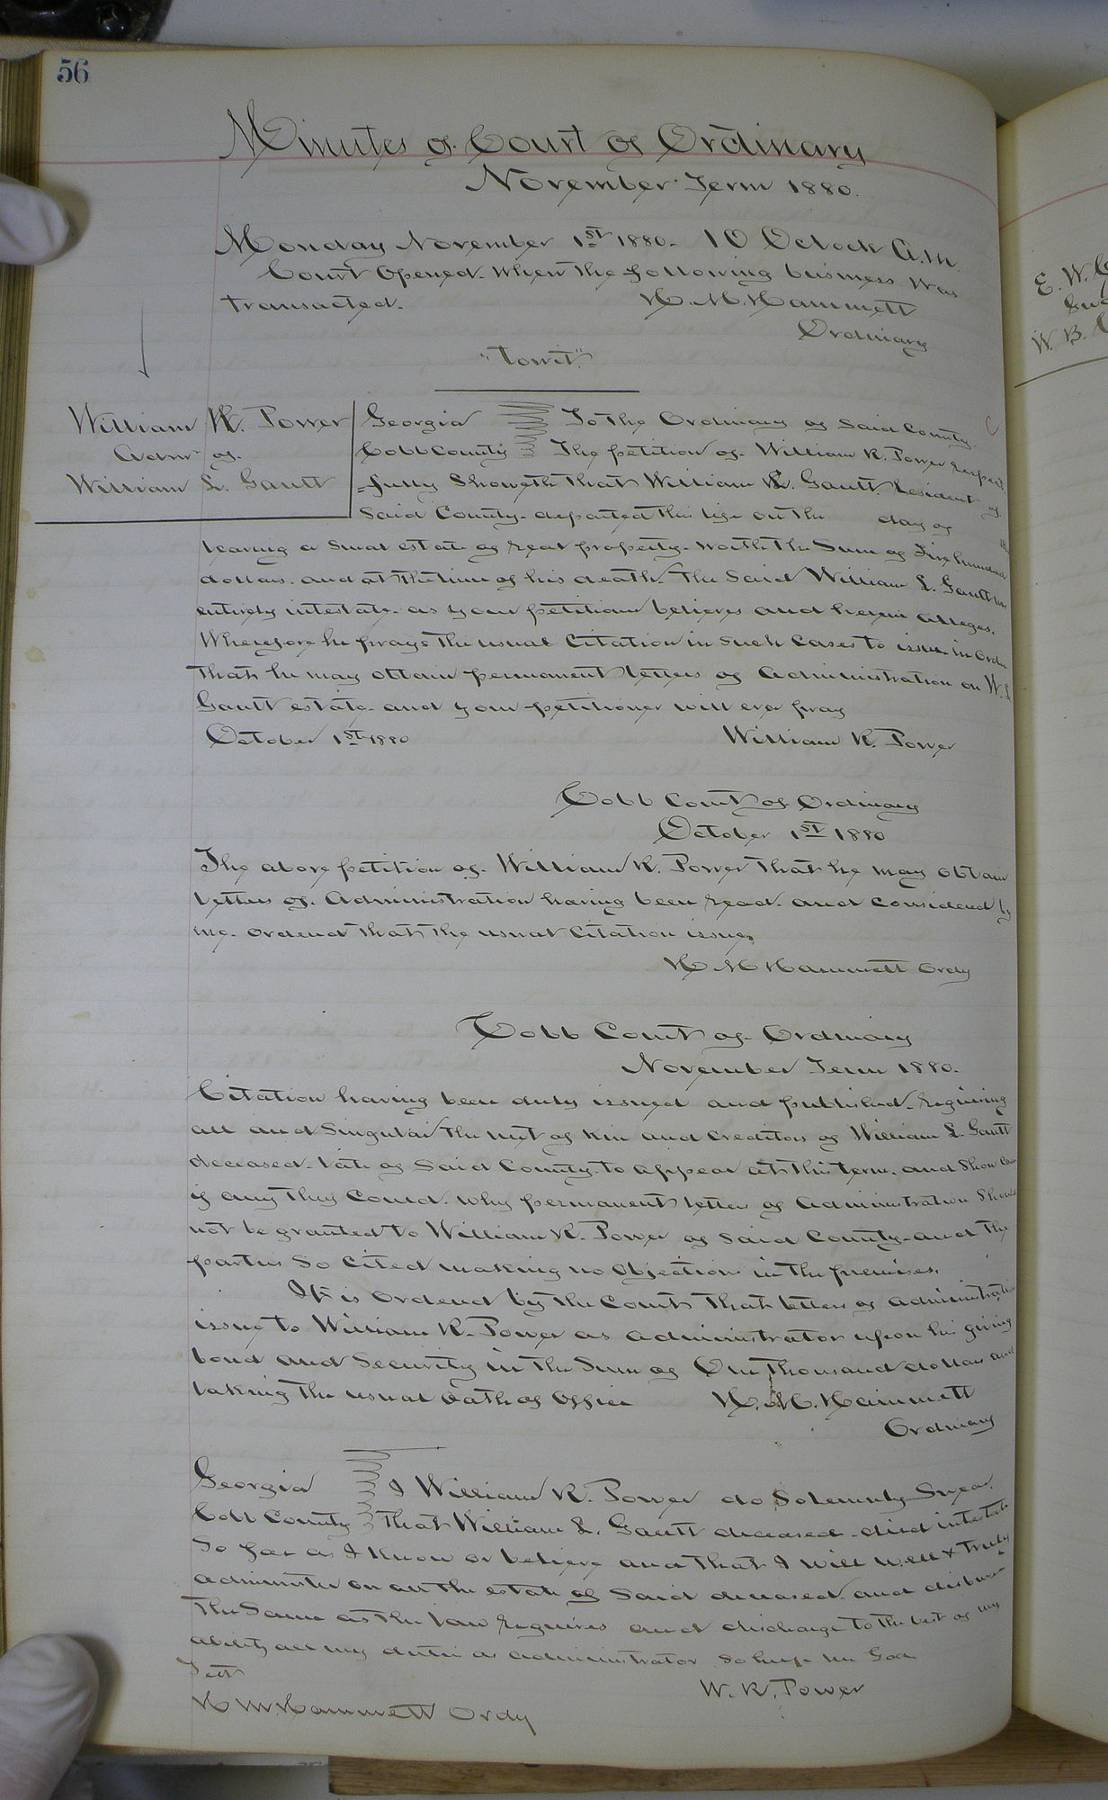 56
Minutes of Court of Ordinary
November Term 1880.
Monday November 1st 1880. 10 Oclock A.M.
Court Opened. When the following business was
transacted. H. M. Hammett
Ordinary
"Towit"
William R. Power
Admr of.
William L. Gantt
Georgia To the Ordinary of Said County.
Cobb County The petition of. William R. Power respect
-fully Showeth that William L. Gantt. resident of
Said County. departed this life on the day of
leaving a Smal estate of real property. worth the Sum of Five hundred
dollars. and at the time of his death. the Said William L. Gantt
entirely intestate. as your petitioner believes and herein alleges.
Wherefore he prays the usual Citation in such Cases to issue in order
that he may obtain permanent letters of Administration on W. L
Gantt estate. and your petitioner will ever pray
October 1st 1880 William R. Power
Cobb Court of Ordinary
October 1st 1880
The above petition of. William R. Power that he may obtain
letters of. Administration having been read. and considered by
me. ordered that the usual Citation issue,
H. M Hammett Ordy
Cobb Court of. Ordinary
November Term 1880.
Citation having been duly issued and published. requiring
all and Singular the next of kin and creditors of William L. Gantt
deceased. late of Said County. to appear at this term. and Show Cause
if any they Could. why permanent letters of administration Should
not be granted to William R. Power of Said County. and the
parties So Cited making no Objection in the premises.
It is Ordered by the Court that letters of administration
issue to William R. Power as administrator upon his giving
bond and Security in the Sum of One Thousand dollars and
taking the usual Oath of Office H. M. Hammett
Ordinary
Georgia I William R. Power do Solemnly Swear.
Cobb County that William L. Gantt deceased. died intestate
So far as I know or believe and that I will well & truly
administer on all the estate of Said deceased. and disburse
the Same as the law requires and discharge to the best of my
ability all my duties as administrator So help me God
Test
H M Hammett Ordy W. R. Power
E. W.
W. B.